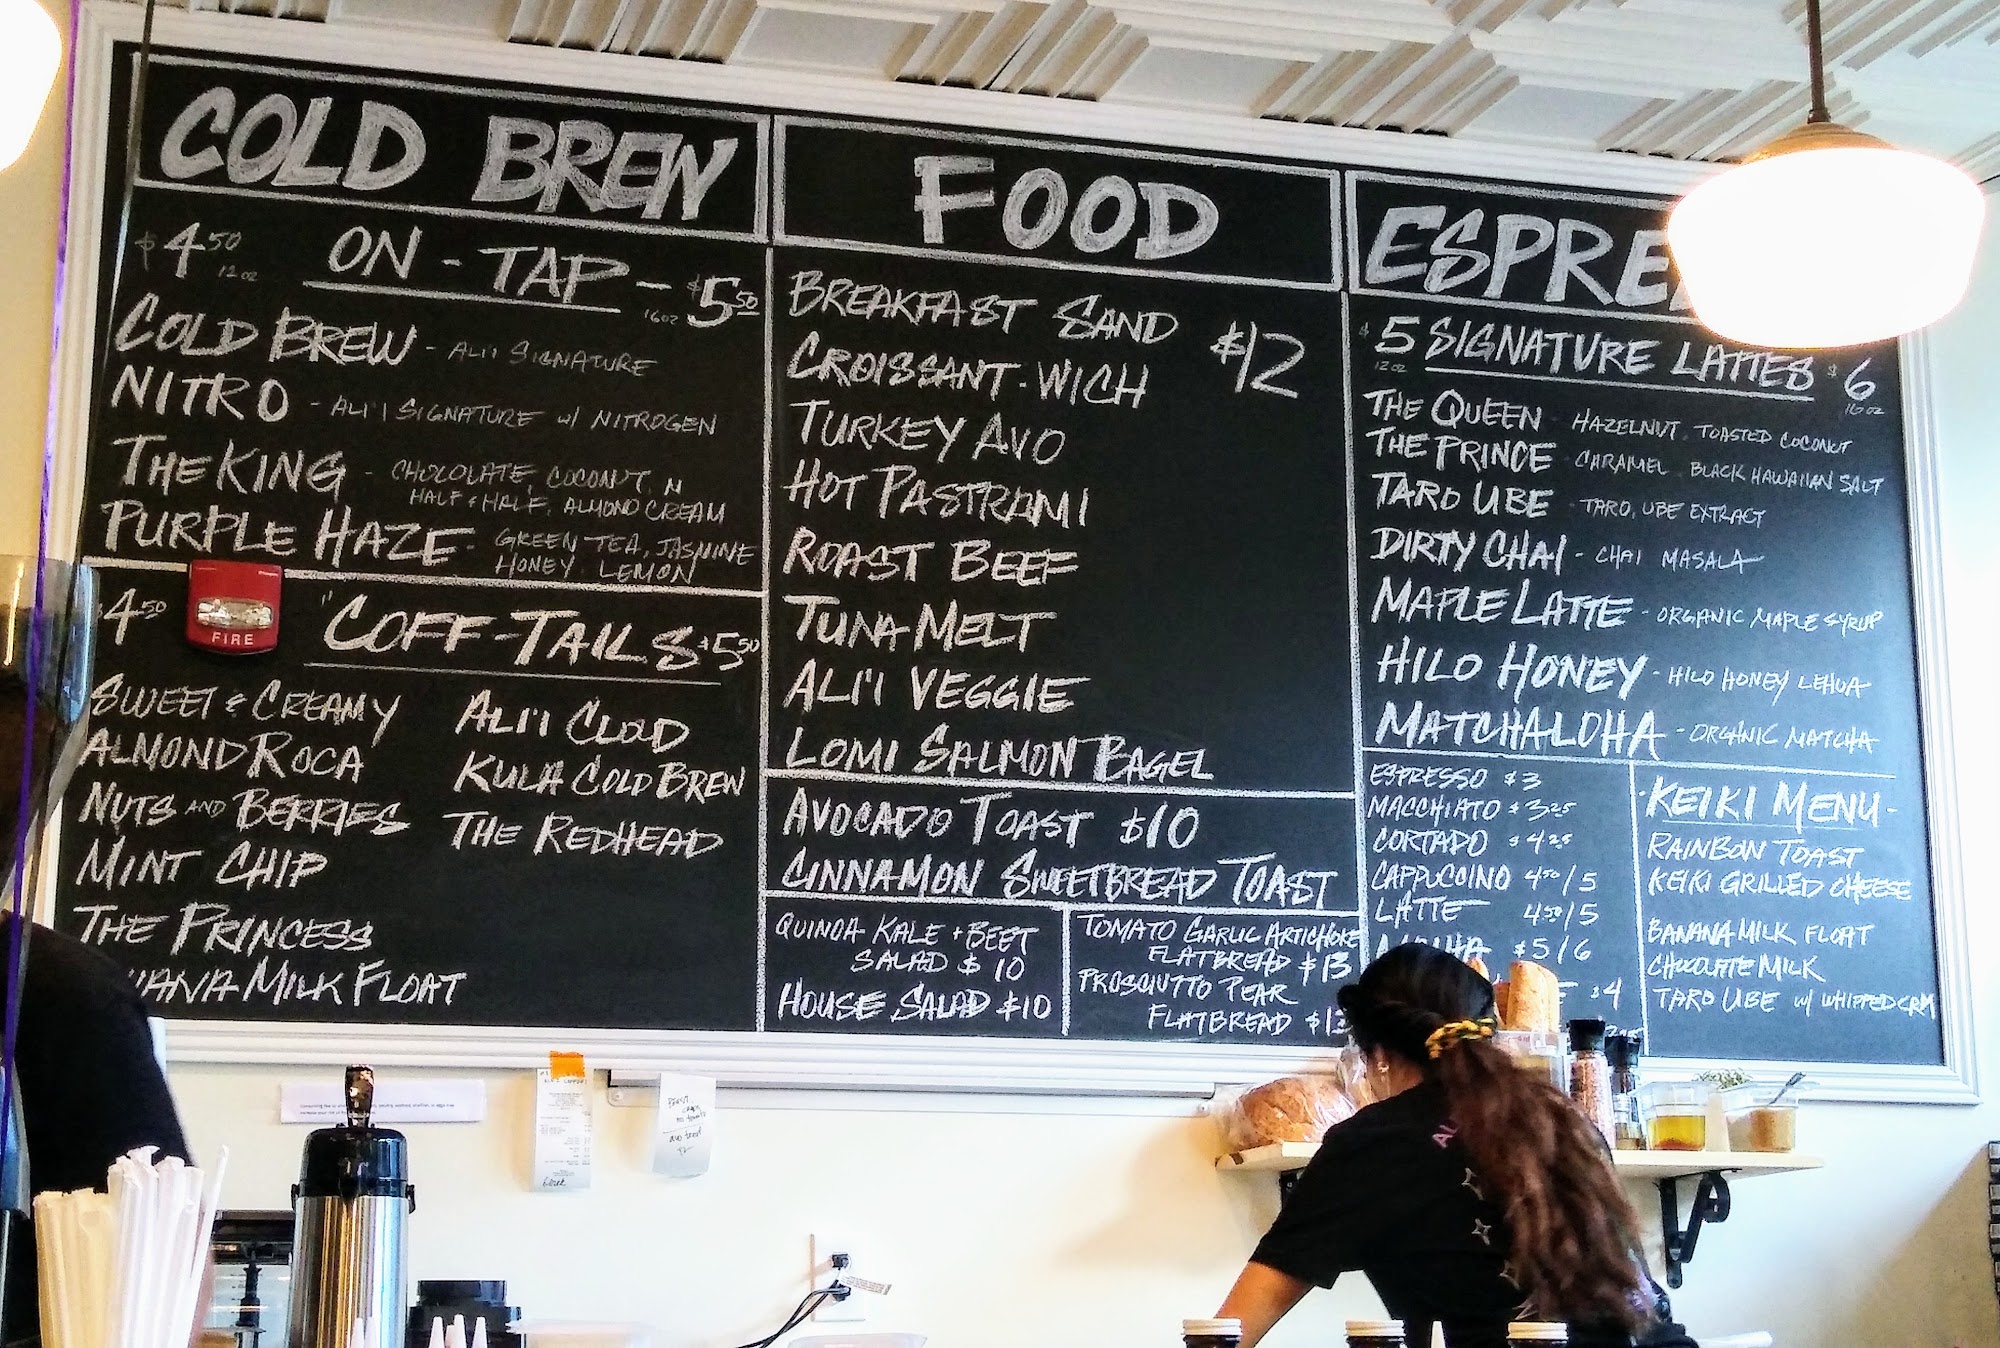 COLD BREW
$4.50 12oz ON-TAP - $5.50 16oz
COLD BREW - ALI'I SIGNATURE
NITRO - ALI'I SIGNATURE w/ NITROGEN
THE KING - CHOCOLATE, COCONUT, M
HALF & HALF, ALMOND CREAM
PURPLE HAZE - GREEN TEA, JASMINE
HONEY, LEMON
FIRE
$4.50 "COFF-TAILS $5.50
SWEET & CREAMY
ALMOND ROCA
NUTS AND BERRIES
MINT CHIP
THE PRINCESS
MILK FLOAT
ALI'I CLOUD
KULA COLD BREW
THE REDHEAD
FOOD
BREAKFAST SAND $12
CROISSANT-WICH
TURKEY AVO
HOT PASTRAMI
ROAST BEEF
TUNA MELT
ALI'I VEGGIE
LOMI SALMON BAGEL
AVOCADO TOAST $10
CINNAMON SWEETBREAD TOAST
QUINOA KALE + BEET
SALAD $10
HOUSE SALAD $10
TOMATO GARLIC ARTICHOKE
FLATBREAD $13
PROSCIUTTO PEAR
FLATBREAD $13
ESPRE
$5 12oz SIGNATURE LATTES $6 16oz
THE QUEEN - HAZELNUT, TOASTED COCONUT
THE PRINCE - CARAMEL, BLACK HAWAIIAN SALT
TARO UBE - TARO, UBE EXTRACT
DIRTY CHAI - CHAI MASALA
MAPLE LATTE - ORGANIC MAPLE SYRUP
HILO HONEY - HILO HONEY LEHUA
MATCHALOHA - ORGANIC MATCHA
ESPRESSO $3
MACCHIATO $3.25
CORTADO $4.25
CAPPUCCINO 4.50/5
LATTE 4.50/5
$5/6
$4
-KEIKI MENU-
RAINBOW TOAST
KEIKI GRILLED CHEESE
BANANA MILK FLOAT
CHOCOLATE MILK
TARO UBE w/ WHIPPED CRM